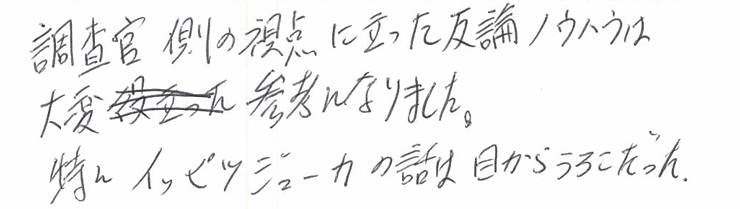 調査官側の視点に立った反論ノウハウは
大変参考になりました。
特にイッピツジューカの話は目からうろこだった.